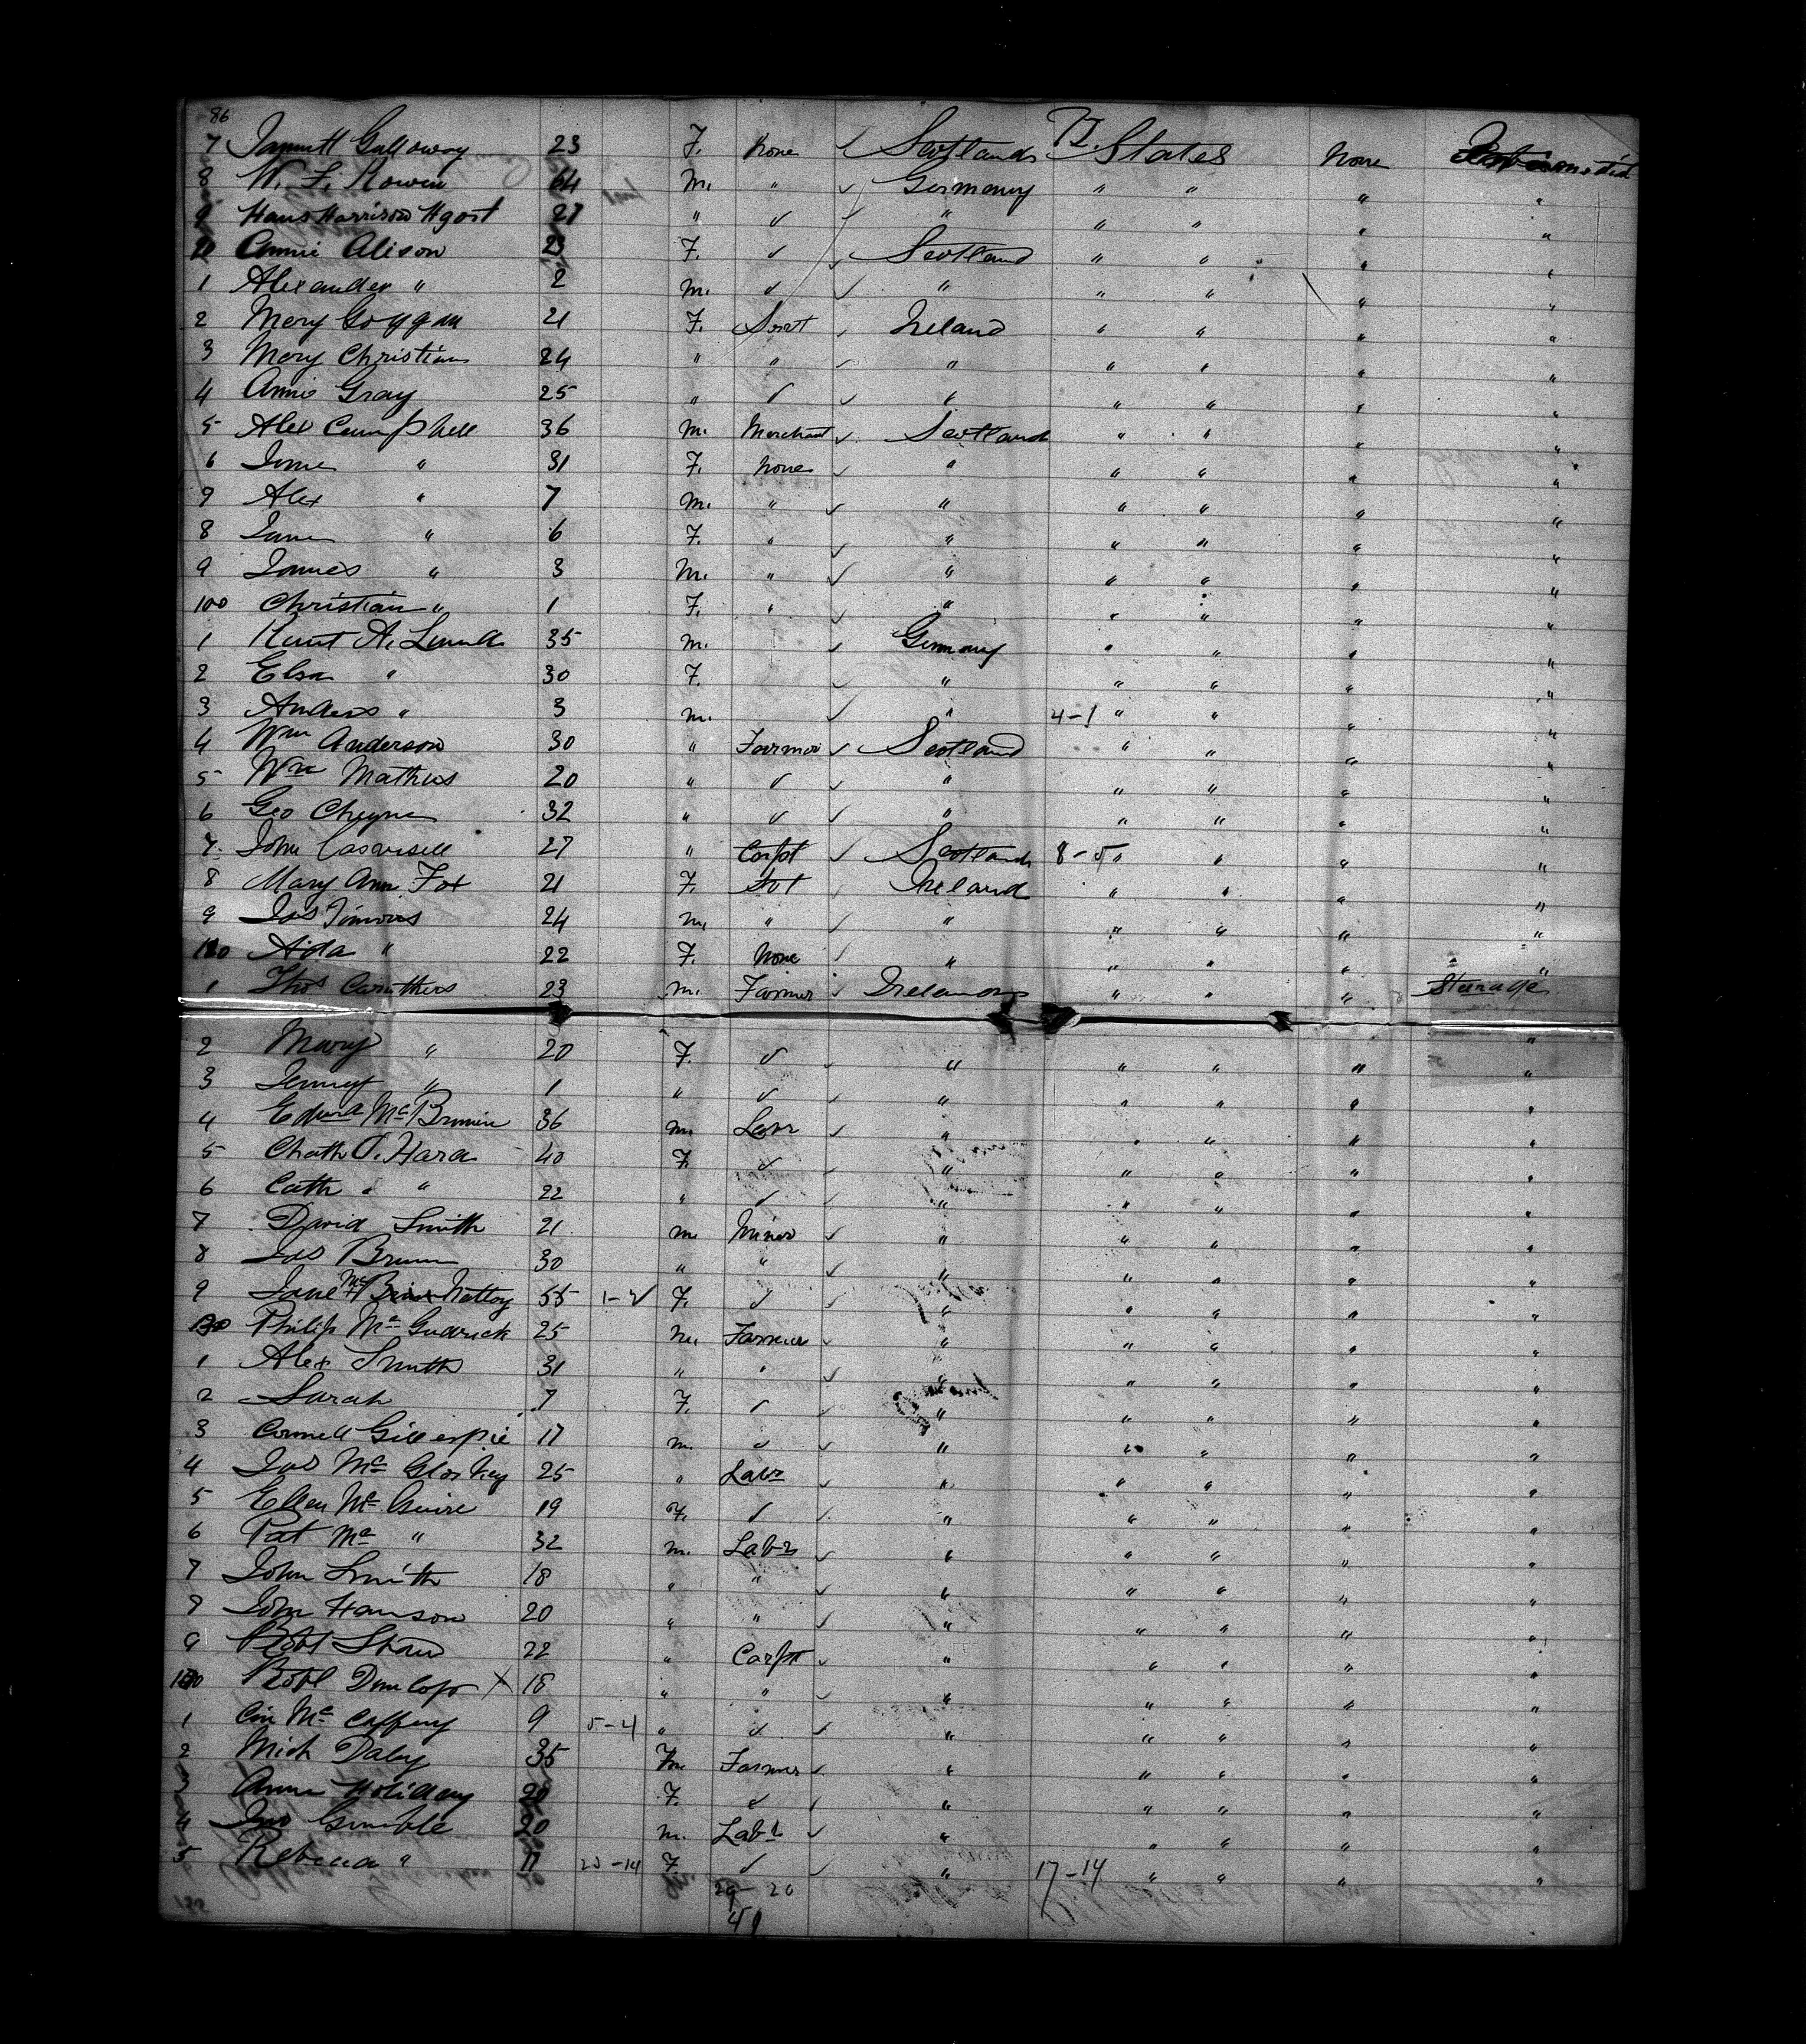 86
7 Galloway 23 F. None ✓ Scotland U. States None
8 W. F. 64 m. " ✓ Germany " " " "
9 Hans Harrison 27 " ✓ ✓ " " " " "
90 Annie Alison 23 F. ✓ ✓ Scotland " " " "
1 Alexander " 2 m. ✓ ✓ " " " " "
2 Mary Goggan 21 F. Servt ✓ Ireland " " " "
3 Mary Christian 24 " " ✓ " " " " "
4 Annie Gray 25 " ✓ ✓ " " " " "
5 Alex Campbell 36 m. Merchant ✓ Scotland " " " "
6 " 31 F. None ✓ " " " " "
7 Alex " 7 m. " ✓ " " " " "
8 Jane " 6 F. " ✓ " " " " "
9 James " 3 m. " ✓ " " " " "
100 Christian " 1 F. " ✓ " " " " "
1 A. 35 m. ✓ Germany " " " "
2 Elsa " 30 F. ✓ " " " " "
3 Anders " 3 m. ✓ " 4-1 " " " "
4 Wm Anderson 30 " Farmer ✓ Scotland " " " "
5 Wm Mathus 20 " ✓ ✓ " " " " "
6 Geo Cheyne 32 " ✓ ✓ " " " " "
7 John 27 " Carpt ✓ Scotland 8-5 " " " "
8 Mary Ann Fox 21 F. ✓ Ireland " " " "
9 Jas 24 m. " ✓ " " " " "
110 Ada " 22 F. None ✓ " " " " "
1 Thos Caruthers 23 m. Farmer ✓ Ireland " " " Steerage
2 Mary " 20 F. ✓ ✓ " " " " "
3 Jenny " 1 " ✓ ✓ " " " " "
4 Edwd 36 m. Labr ✓ " " " " "
5 Cath O'Hara 40 F. ✓ ✓ " " " " "
6 Cath " " 22 " ✓ ✓ " " " " "
7 David Smith 21 m. Miner ✓ " " " " "
8 Jas 30 " " ✓ " " " " "
9 Jane 55 1-2 F. ✓ ✓ " " " " "
120 Philip 25 m. Farmer ✓ " " " " "
1 Alex Smith 31 " " ✓ " " " " "
2 Sarah 7 F. ✓ ✓ " " " " "
3 Connell Gillespie 17 m. ✓ ✓ " " " " "
4 Jas McCloskey 25 " Labr ✓ " " " " "
5 Ellen McGuire 19 F. ✓ ✓ " " " " "
6 Pat Mc " 32 m. Labr ✓ " " " " "
7 John Smith 18 " " ✓ " " " " "
8 John Hanson 20 " " ✓ " " " " "
9 Robt Shaw 22 " Carpt ✓ " " " " "
130 Robt Dunlop X 18 " " ✓ " " " " "
1 McCaffery 9 5-4 " ✓ ✓ " " " " "
2 Mich Daley 35 m Farmer ✓ " " " " "
3 Anna Holiday 20 F. ✓ ✓ " " " " "
4 Jno Gamble 20 m. Labr ✓ " " " " "
5 Rebecca " 11 25-14 F. ✓ ✓ " 17-14 " " " "
29-20